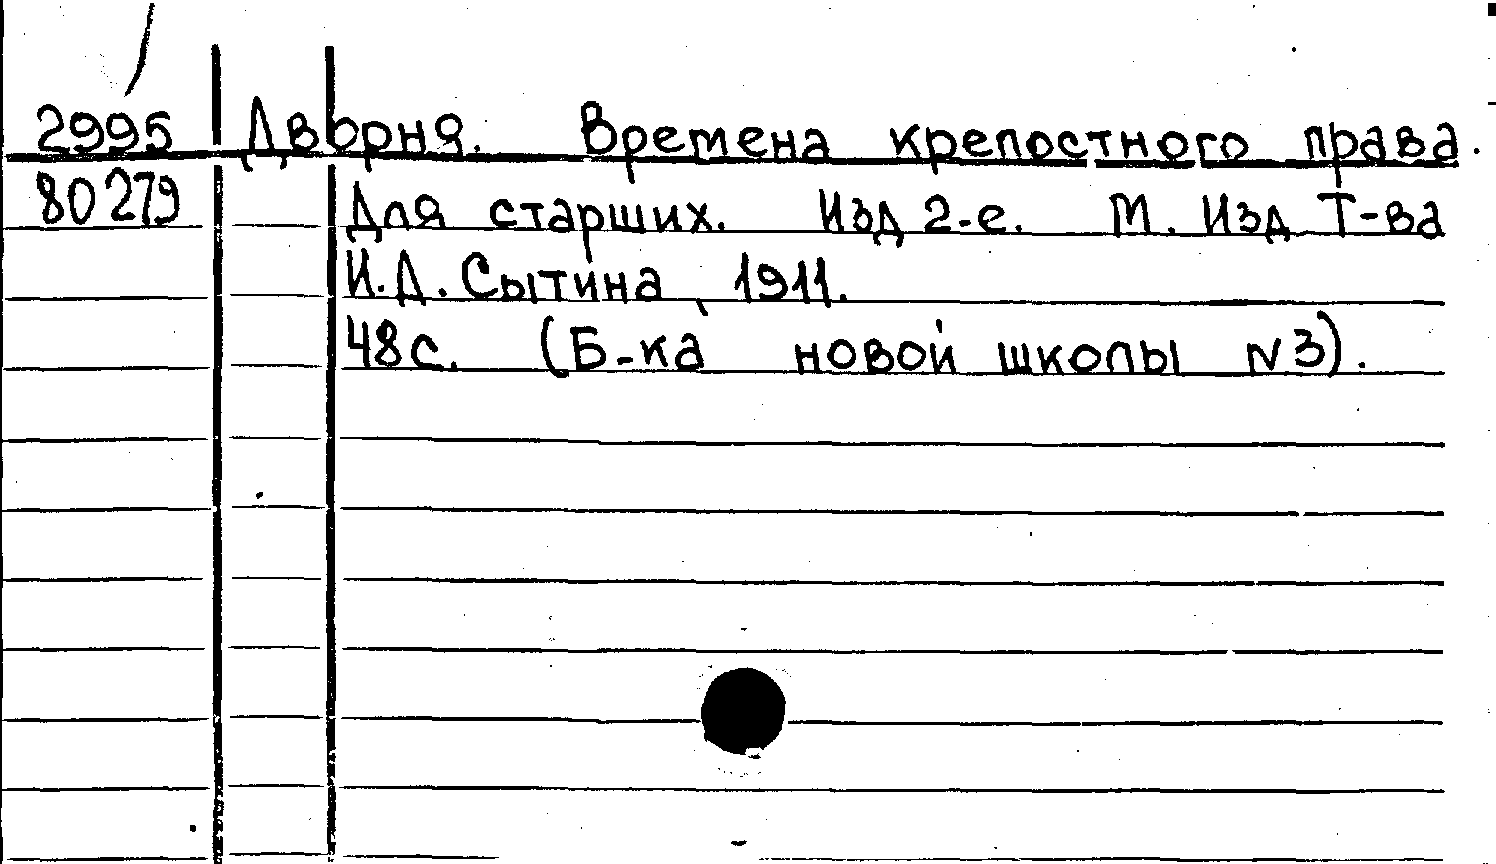 2995 Дворня. Времена крепостного права.
80279 Для старших. Изд 2-е. М. Изд Т-ва
И.Д. Сытина, 1911.
48с. (Б-ка новой школы N3).